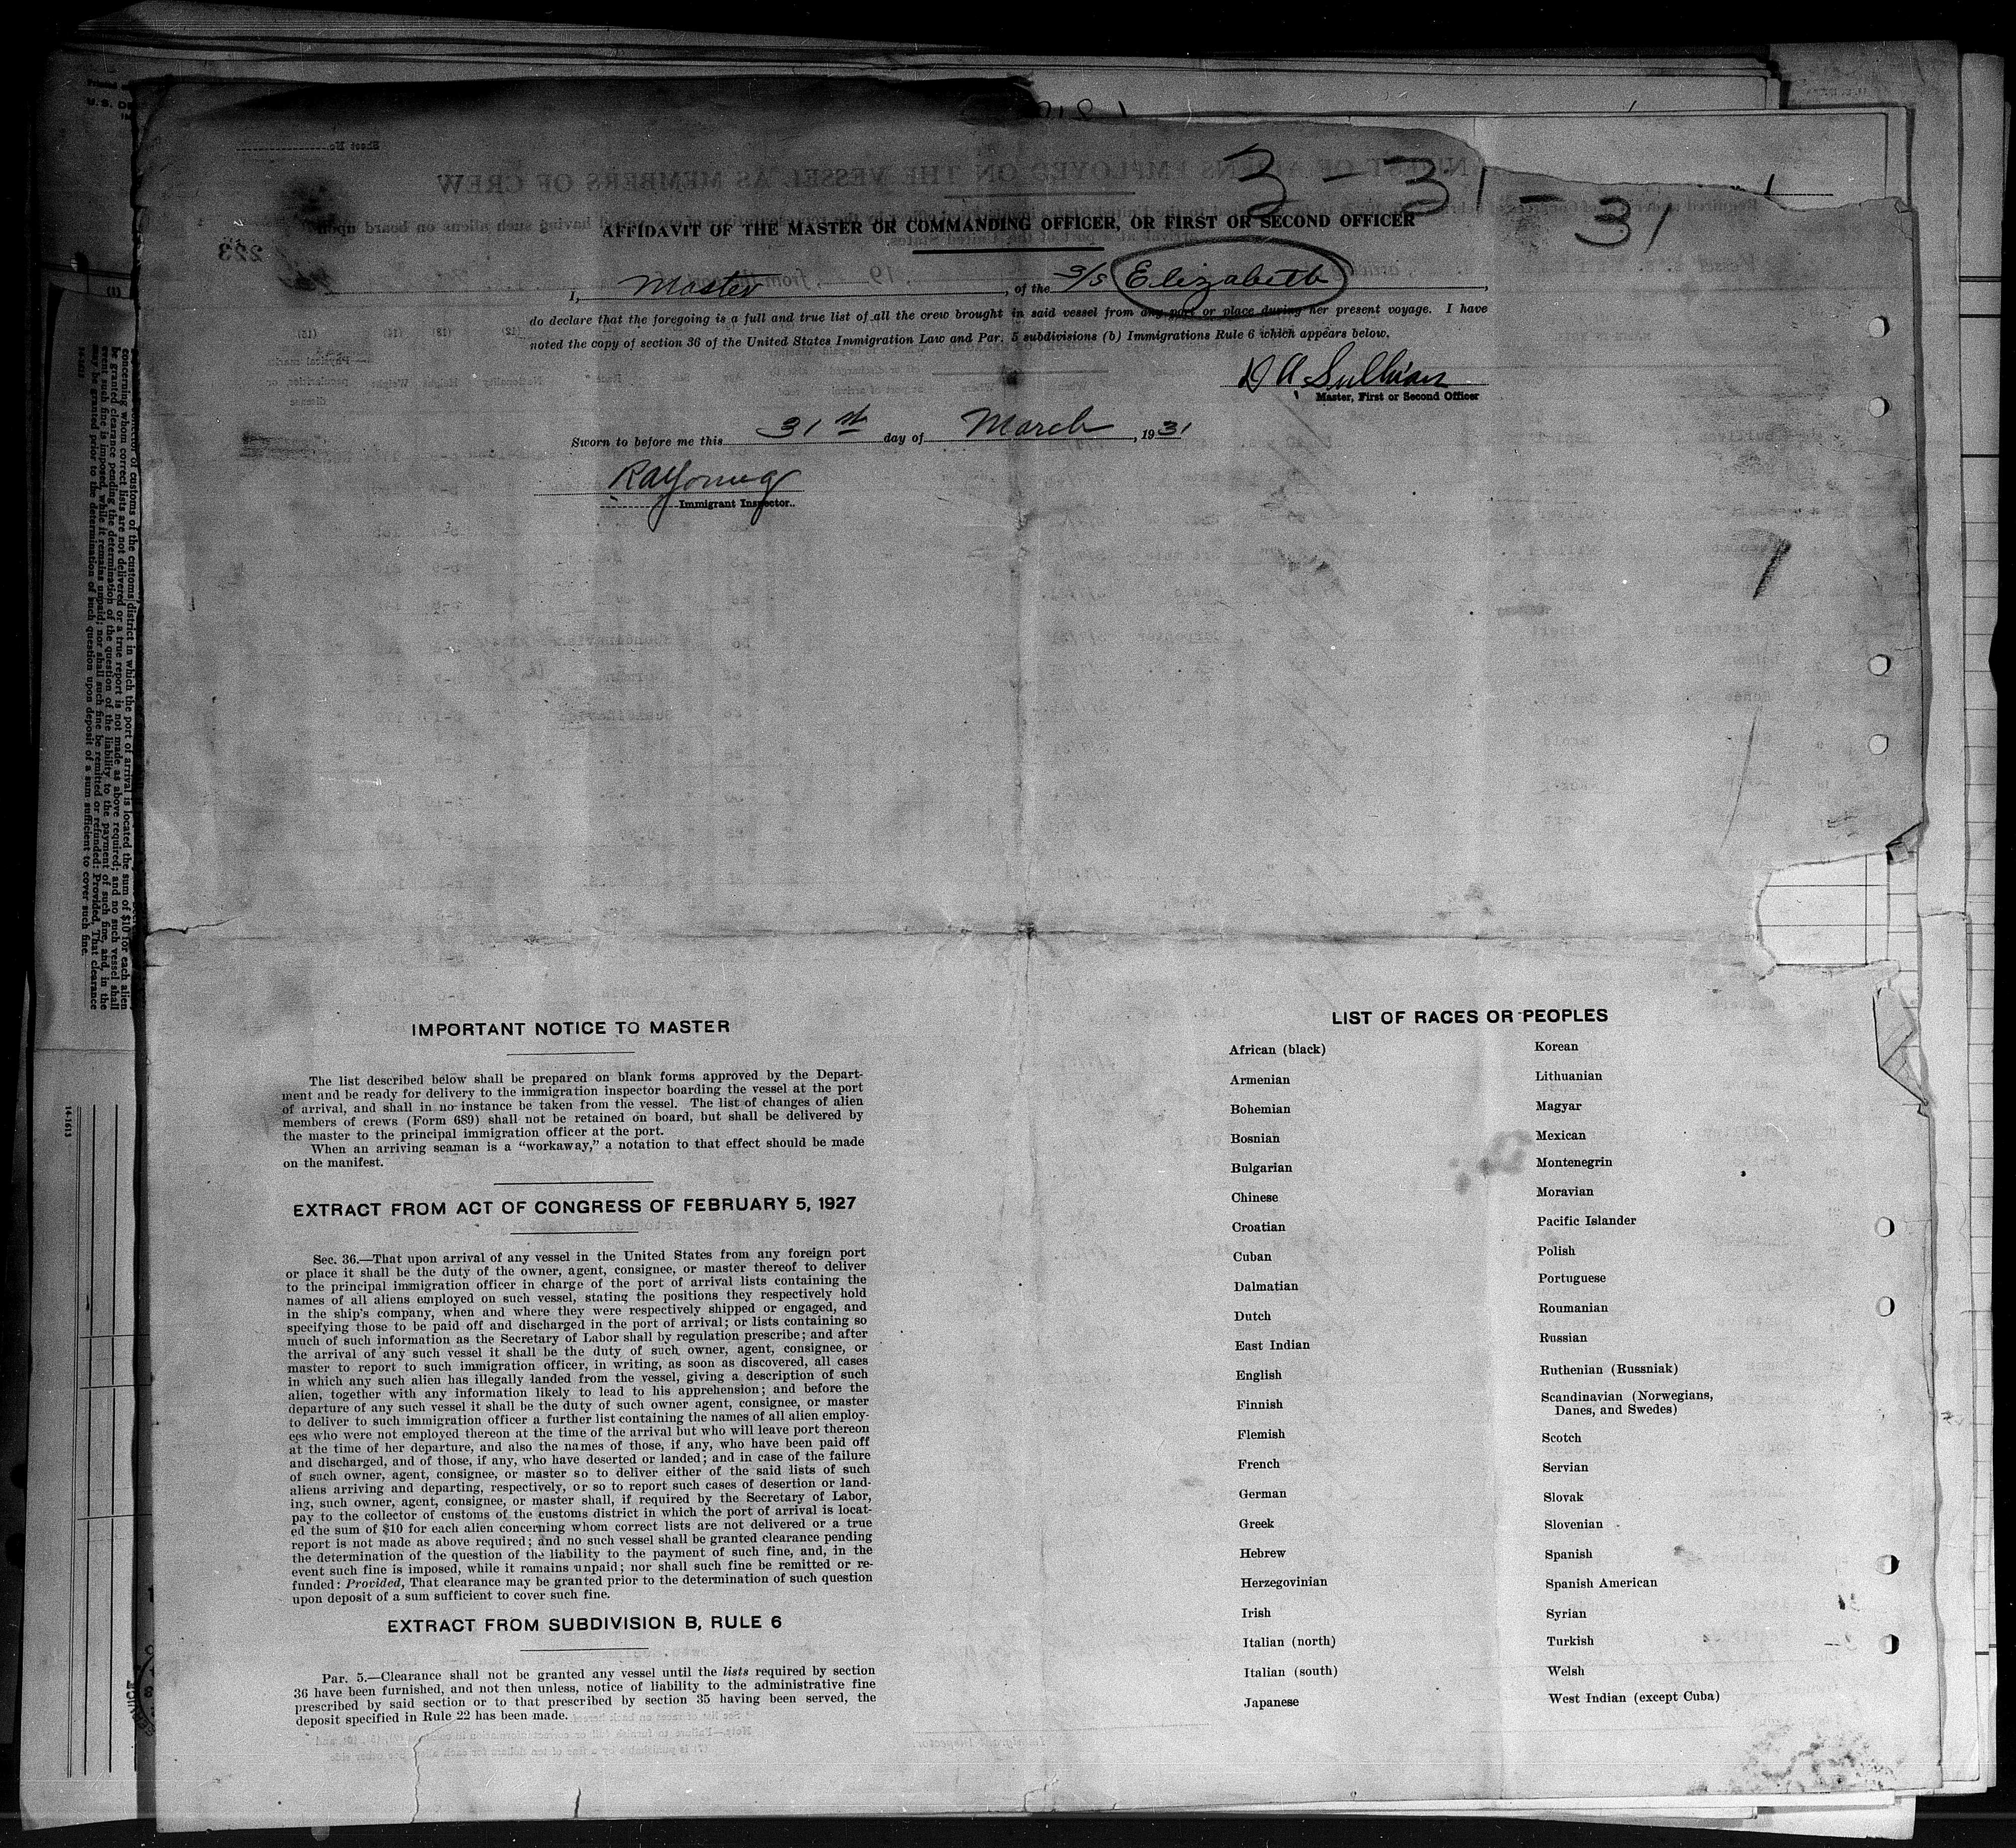 3-31-31
AFFIDAVIT OF THE MASTER OR COMMANDING OFFICER, OR FIRST OR SECOND OFFICER
I, Master, of the S/S Elizabeth,
do declare that the foregoing is a full and true list of all the crew brought in said vessel from any port or place during her present voyage. I have
noted the copy of section 36 of the United States Immigration Law and Par. 5 subdivisions (b) Immigrations Rule 6 which appears below.
D A Sullivan
Master, First or Second Officer
Sworn to before me this 31st day of March, 1931
RAYoung
Immigrant Inspector.
IMPORTANT NOTICE TO MASTER
The list described below shall be prepared on blank forms approved by the Depart-
ment and be ready for delivery to the immigration inspector boarding the vessel at the port
of arrival, and shall in no instance be taken from the vessel. The list of changes of alien
members of crews (Form 689) shall not be retained on board, but shall be delivered by
the master to the principal immigration officer at the port.
When an arriving seaman is a “workaway,” a notation to that effect should be made
on the manifest.
EXTRACT FROM ACT OF CONGRESS OF FEBRUARY 5, 1927
Sec. 36.—That upon arrival of any vessel in the United States from any foreign port
or place it shall be the duty of the owner, agent, consignee, or master thereof to deliver
to the principal immigration officer in charge of the port of arrival lists containing the
names of all aliens employed on such vessel, stating the positions they respectively hold
in the ship's company, when and where they were respectively shipped or engaged, and
specifying those to be paid off and discharged in the port of arrival; or lists containing so
much of such information as the Secretary of Labor shall by regulation prescribe; and after
the arrival of any such vessel it shall be the duty of such owner, agent, consignee, or
master to report to such immigration officer, in writing, as soon as discovered, all cases
in which any such alien has illegally landed from the vessel, giving a description of such
alien, together with any information likely to lead to his apprehension; and before the
departure of any such vessel it shall be the duty of such owner agent, consignee, or master
to deliver to such immigration officer a further list containing the names of all alien employ-
ees who were not employed thereon at the time of the arrival but who will leave port thereon
at the time of her departure, and also the names of those, if any, who have been paid off
and discharged, and of those, if any, who have deserted or landed; and in case of the failure
of such owner, agent, consignee, or master so to deliver either of the said lists of such
aliens arriving and departing, respectively, or so to report such cases of desertion or land-
ing, such owner, agent, consignee, or master shall, if required by the Secretary of Labor,
pay to the collector of customs of the customs district in which the port of arrival is locat-
ed the sum of $10 for each alien concerning whom correct lists are not delivered or a true
report is not made as above required; and no such vessel shall be granted clearance pending
the determination of the question of the liability to the payment of such fine, and, in the
event such fine is imposed, while it remains unpaid; nor shall such fine be remitted or re-
funded: Provided, That clearance may be granted prior to the determination of such question
upon deposit of a sum sufficient to cover such fine.
EXTRACT FROM SUBDIVISION B, RULE 6
Par. 5.—Clearance shall not be granted any vessel until the lists required by section
36 have been furnished, and not then unless, notice of liability to the administrative fine
prescribed by said section or to that prescribed by section 35 having been served, the
deposit specified in Rule 22 has been made.
LIST OF RACES OR PEOPLES
African (black)
Armenian
Bohemian
Bosnian
Bulgarian
Chinese
Croatian
Cuban
Dalmatian
Dutch
East Indian
English
Finnish
Flemish
French
German
Greek
Hebrew
Herzegovinian
Irish
Italian (north)
Italian (south)
Japanese
Korean
Lithuanian
Magyar
Mexican
Montenegrin
Moravian
Pacific Islander
Polish
Portuguese
Roumanian
Russian
Ruthenian (Russniak)
Scandinavian (Norwegians,
Danes, and Swedes)
Scotch
Servian
Slovak
Slovenian
Spanish
Spanish American
Syrian
Turkish
Welsh
West Indian (except Cuba)
collector of customs of the customs district in which the port of arrival is located the sum of $10 for each alien
concerning whom correct lists are not delivered or a true report is not made as above required; and no such vessel shall
be granted clearance pending the determination of the question of the liability to the payment of such fine, and, in the
event such fine is imposed, while it remains unpaid; nor shall such fine be remitted or refunded: Provided, That clearance
may be granted prior to the determination of such question upon deposit of a sum sufficient to cover such fine.